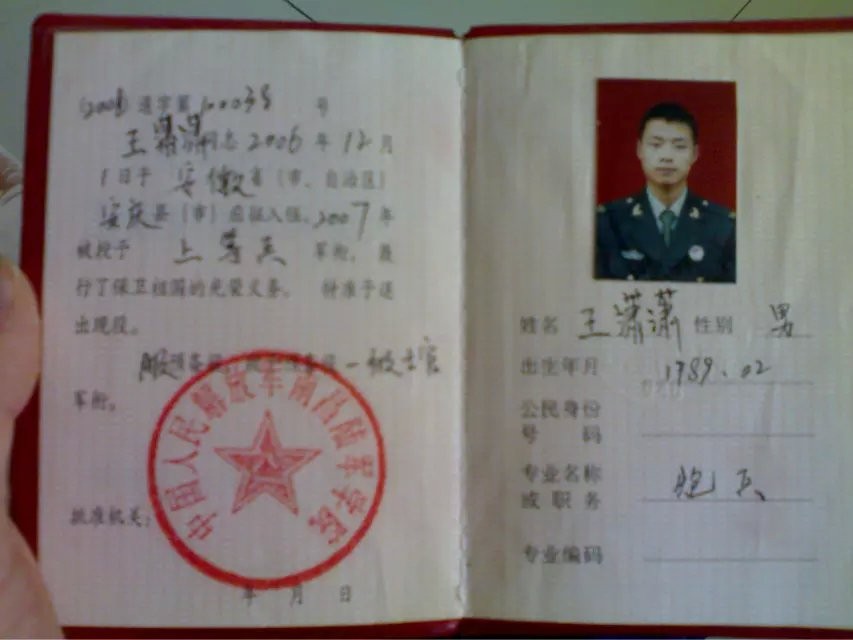 (2008)退字第10038号
王潇潇同志2006年12月
1日于安徽省(市、自治区)
安庆县(市)应征入伍,2007年
被授予上等兵军衔。履
行了保卫祖国的光荣义务。特准予退
出现役。
服预备役 一级士官
军衔。
批准机关:
中国人民解放军南昌陆军学院
年 月 日
姓名 王潇潇 性别 男
出生年月 1989.02
公民身份
号码
专业名称 炮兵
或职务
专业编码